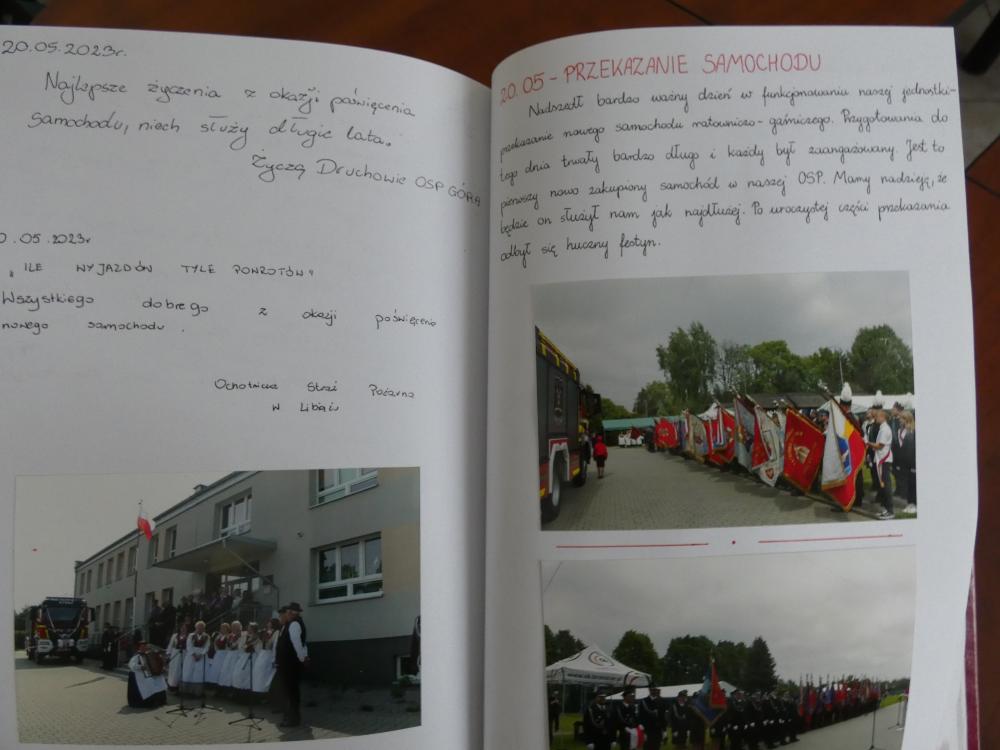 20.05.2023r.
Najlepsze życzenia z okazji poświęcenia
samochodu, niech służy długie lata.
Życzą Druchowie OSP GÓRA
0.05.2023r
"ILE WYJAZDÓW TYLE POWROTÓW"
Wszystkiego dobrego z okazji poświęcenia
nowego samochodu.
Ochotnicza Straż Pożarna
w Libiążu
20.05 - PRZEKAZANIE SAMOCHODU
Nadszedł bardzo ważny dzień w funkcjonowaniu naszej jednostki-
przekazanie nowego samochodu ratowniczo-gaśniczego. Przygotowania do
tego dnia trwały bardzo długo i każdy był zaangażowany. Jest to
pierwszy nowo zakupiony samochód w naszej OSP. Mamy nadzieję, że
będzie on służył nam jak najdłużej. Po uroczystej części przekazania
odbył się huczny festyn.